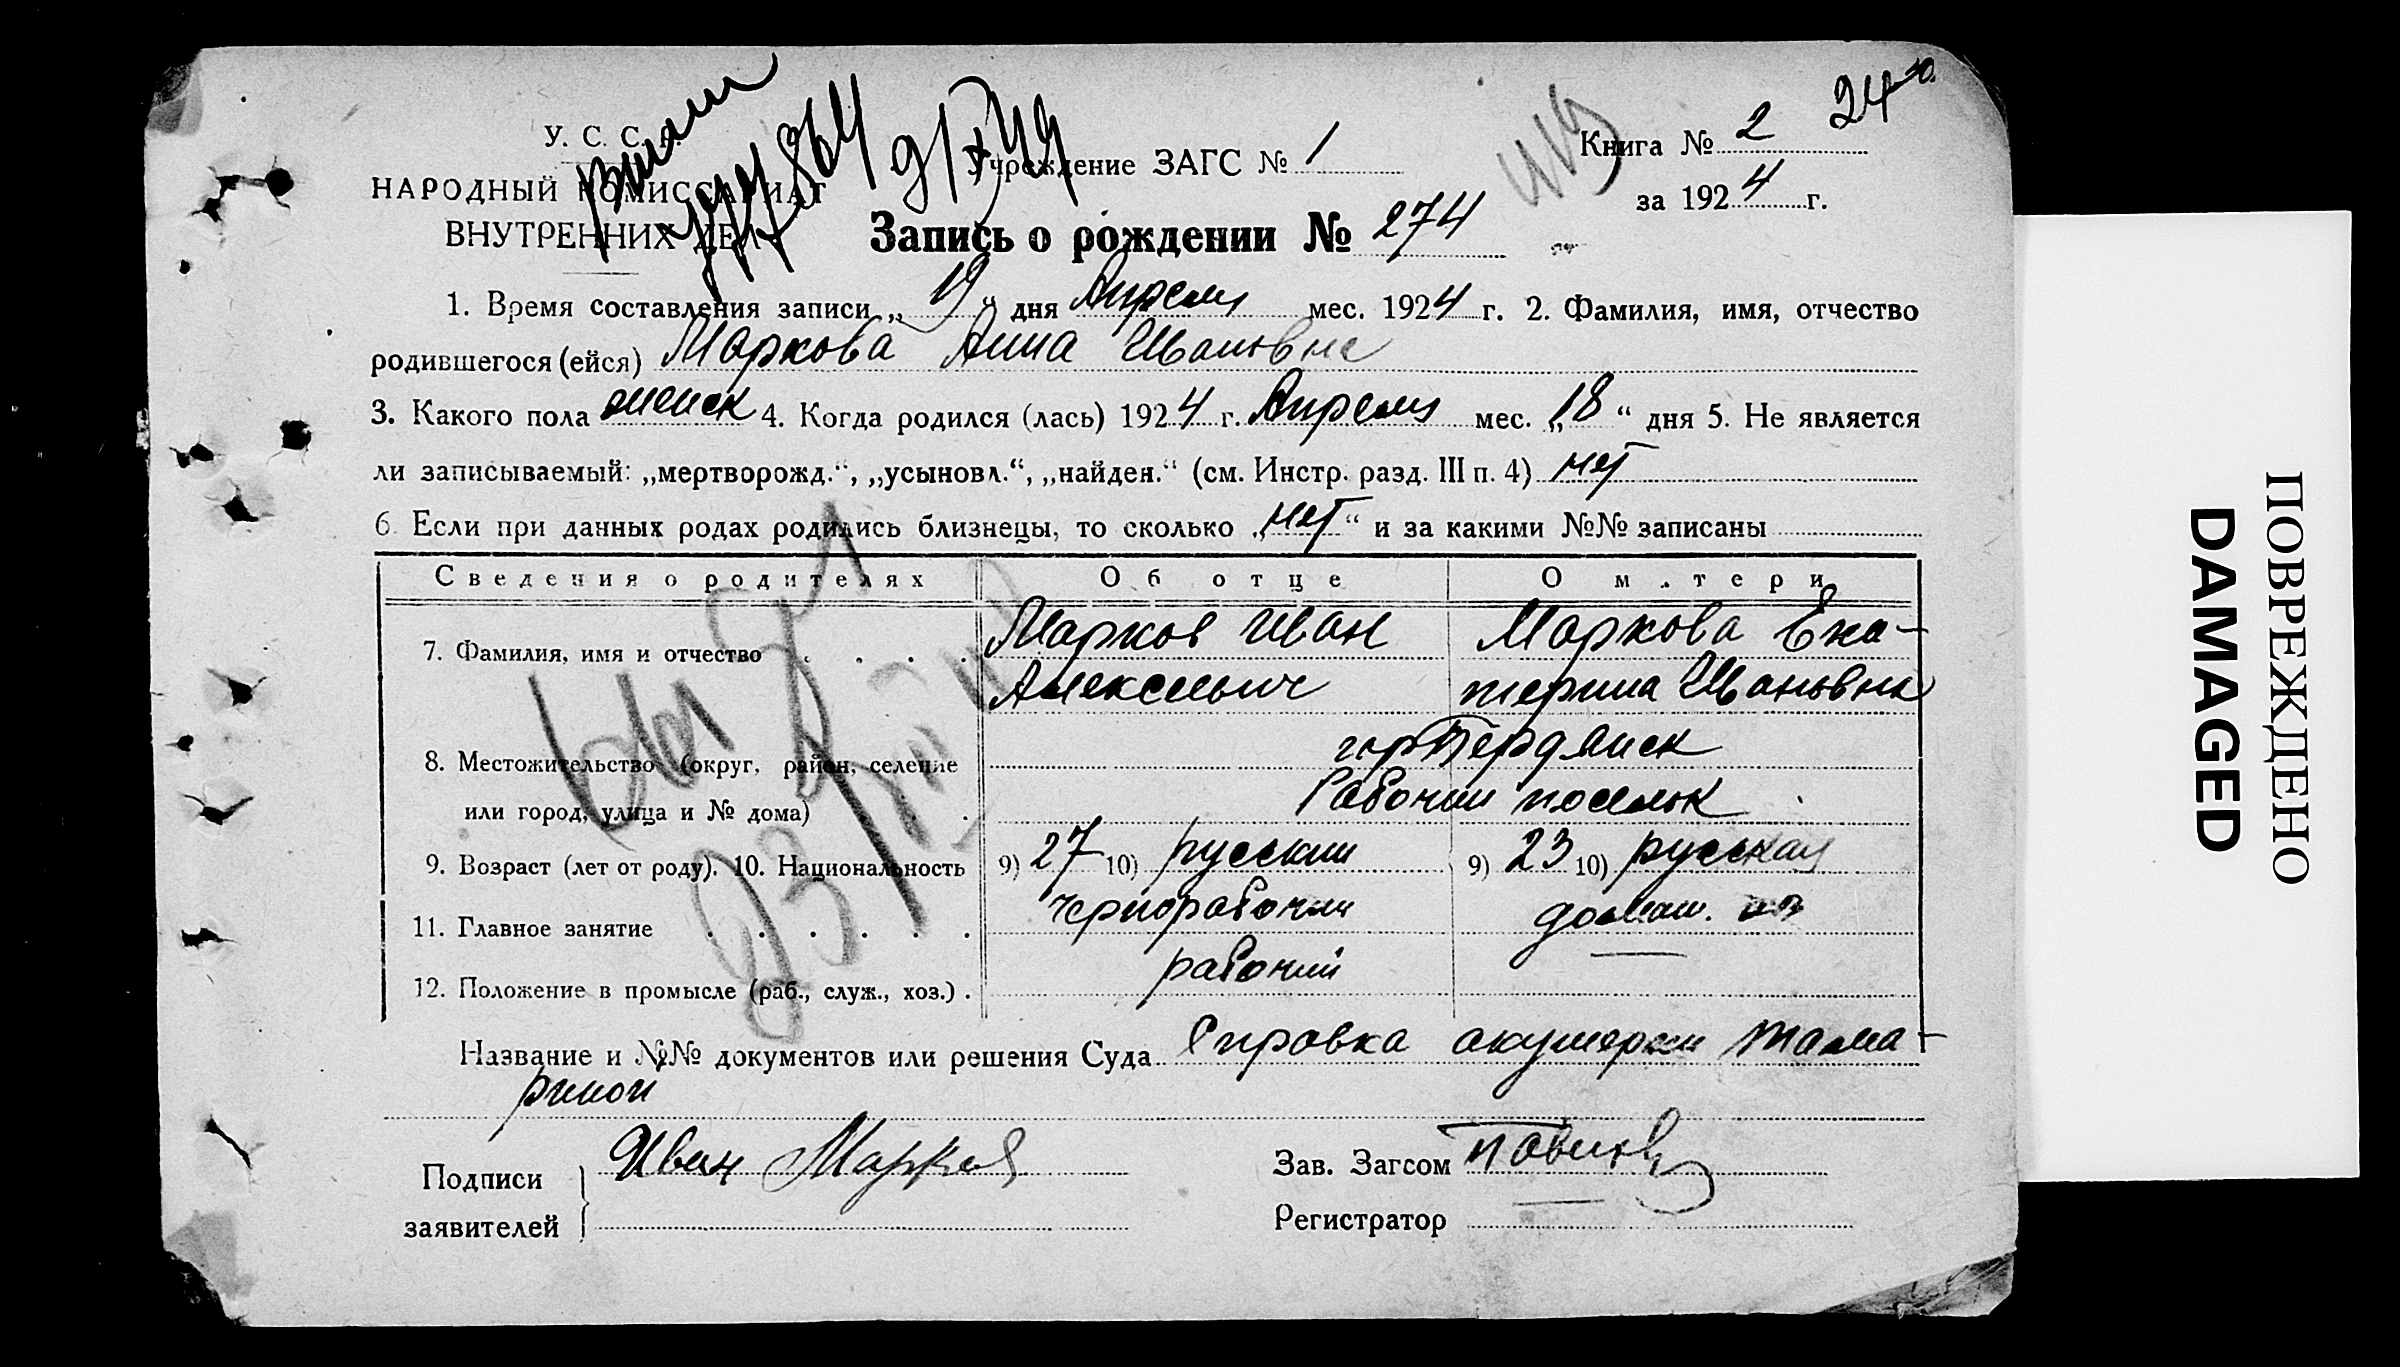 24
У. С. С. Р.
НАРОДНЫЙ КОМИССАРИАТ
ВНУТРЕННИХ ДЕЛ
Учреждение ЗАГС № 1
Книга № 2
за 1924 г.
Запись о рождении № 274
1. Время составления записи „19“ дня Апреля мес. 1924 г. 2. Фамилия, имя, отчество
родившегося (ейся) Маркова Анна Ивановна
3. Какого пола женск 4. Когда родился (лась) 1924 г. Апреля мес. „18“ дня 5. Не является
ли записываемый: „мертворожд.“, „усыновл.“, „найден.“ (см. Инстр. разд. III п. 4) нет
6. Если при данных родах родились близнецы, то сколько „нет“ и за какими №№ записаны
Сведения о родителях Об отце О матери
7. Фамилия, имя и отчество Марков Иван Маркова Ека-
Алексеевич терина Ивановна
8. Местожительство (округ, район, селение гор Бердянск
или город, улица и № дома) Рабочий поселок
9. Возраст (лет от роду). 10. Национальность 9) 27 10) русский 9) 23 10) русская
11. Главное занятие чернорабочий домаш.
12. Положение в промысле (раб., служ., хоз.) рабочий
Название и №№ документов или решения Суда Справка акушерки Тама-
риной
Подписи
заявителей
Иван Марков
Зав. Загсом
Регистратор
ПОВРЕЖДЕНО
DAMAGED